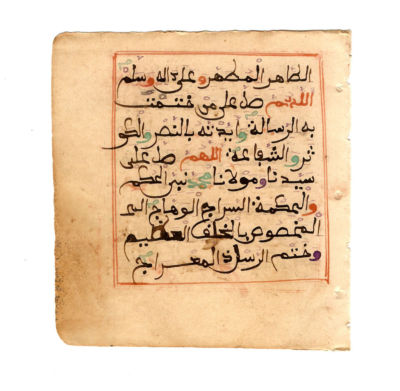 الطاهر المطهر وعلى اله وسلم
اللهم صل على من ختمت
به الرسالة وايدته بالنصر والكو
ثر والشفاعة اللهم صل على
سيدنا ومولانا محمد نبي الحكم
والحكمة السراج الوهاج
المخصوص بالخلق العظيم
وختم الرسل المعراج